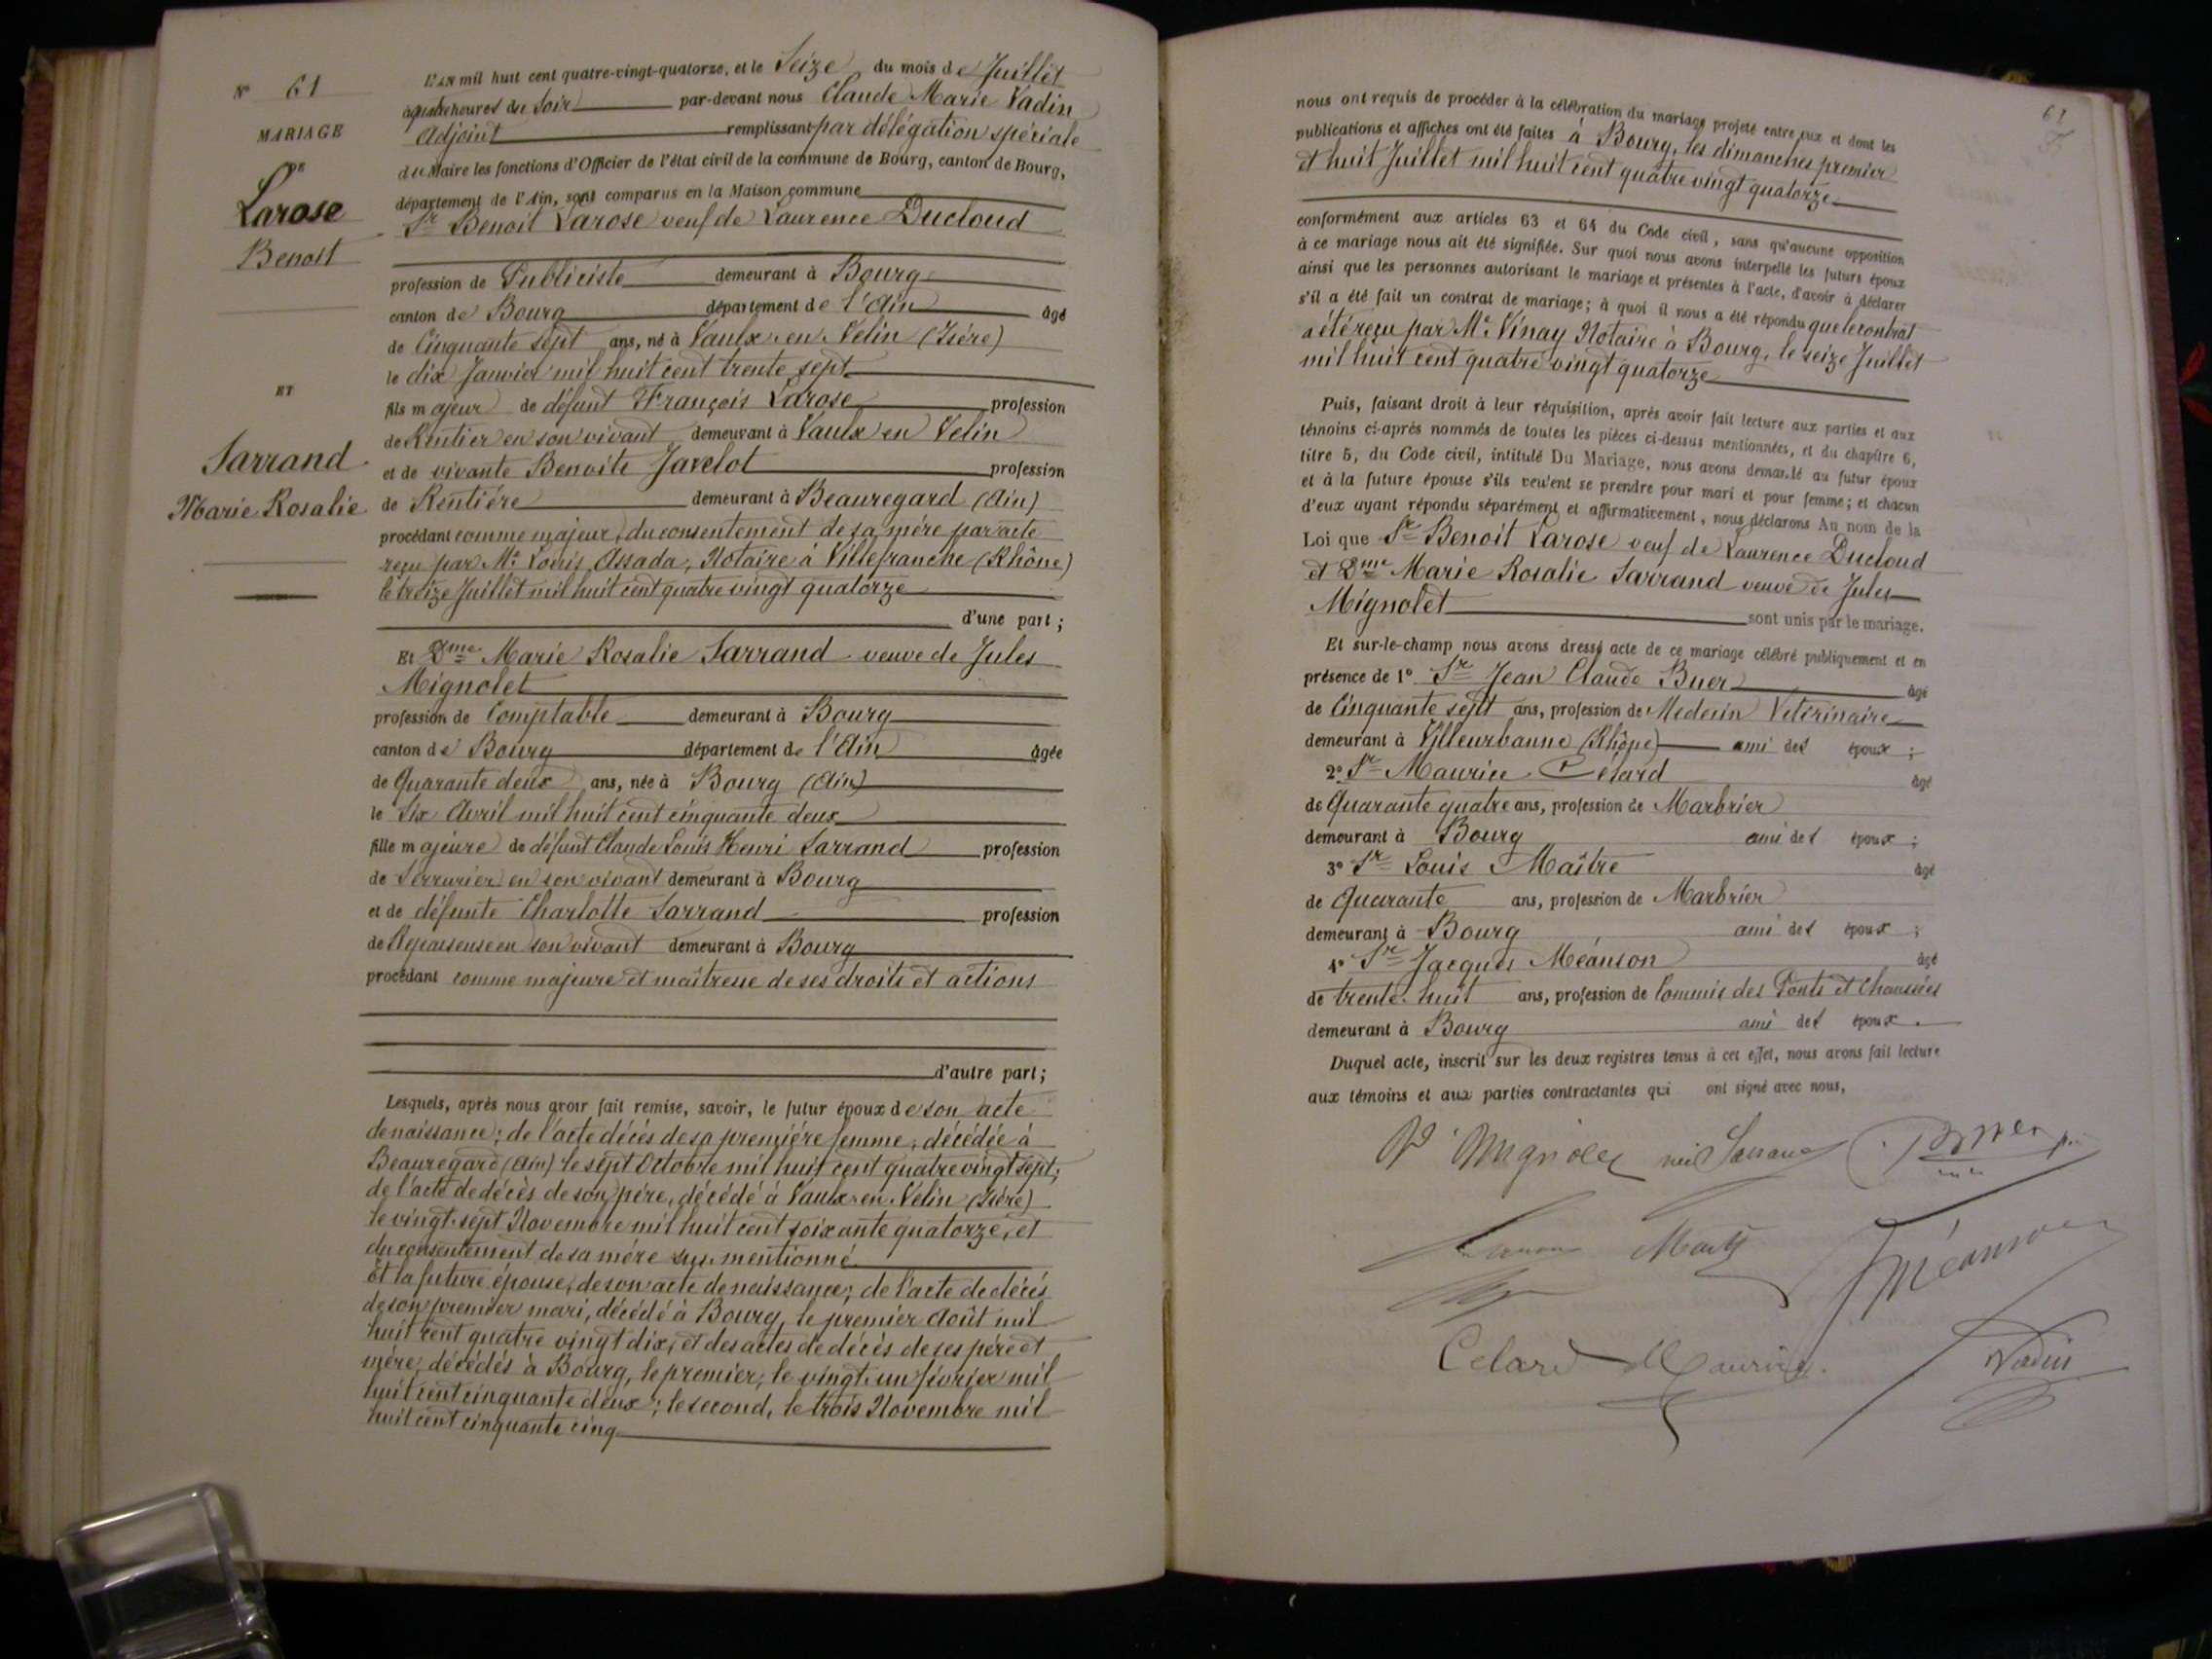 N° 61
MARIAGE
DE
Larose
Benoit
ET
Sarrand
Marie Rosalie
L'an mil huit cent quatre-vingt-quatorze, et le Seize du mois de Juillet
à quatre heures du Soir par-devant nous Claude Marie Vadin
Adjoint remplissant par délégation spéciale
du Maire les fonctions d'Officier de l'état civil de la commune de Bourg, canton de Bourg,
département de l'Ain, sont comparus en la Maison commune
Sr Benoit Larose veuf de Laurence Ducloud
profession de Publiciste demeurant à Bourg
canton de Bourg département de l'Ain âgé
de Cinquante sept ans, né à Vaulx-en-Velin (Isére)
le dix Janvier mil huit cent trente sept
fils majeur de défunt François Larose profession
de Rentier en son vivant demeurant à Vaulx en Velin
et de vivante Benoite Javelot profession
de Rentiére demeurant à Beauregard (Ain)
procédant comme majeur, du consentement de sa mére par acte
reçu par Me Louis Assada, Notaire à Villefranche (Rhône)
le treize Juillet mil huit cent quatre vingt quatorze
d'une part ;
Et Dme Marie Rosalie Sarrand veuve de Jules
Mignolet
profession de Comptable demeurant à Bourg
canton de Bourg département de l'Ain âgée
de Quarante deux ans, née à Bourg (Ain)
le Six Avril mil huit cent cinquante deux
fille majeure de défunt Claude Louis Henri Sarrand profession
de Serrurier en son vivant demeurant à Bourg
et de défunte Charlotte Sarrand profession
de Repasseuse en son vivant demeurant à Bourg
procédant comme majeure et maîtresse de ses droits et actions
d'autre part ;
Lesquels, après nous avoir fait remise, savoir, le futur époux de son acte
de naissance ; de l'acte décés de sa premiére femme, décédée à
Beauregard (Ain) le sept Octobre mil huit cent quatre vingt sept ;
de l'acte de décès de son pére, décédé à Vaulx-en-Velin (Isére)
le vingt-sept Novembre mil huit cent soixante quatorze, et
du consentement de sa mére sus-mentionné
Et la future épouse, de son acte de naissance ; de l'acte de décés
de son premier mari, décédé à Bourg, le premier Août mil
huit cent quatre vingt dix, et des actes de décés de ses pére et
mére, décédés à Bourg, le premier, le vingt-un février mil
huit cent cinquante deux ; le second, le trois Novembre mil
huit cent cinquante cinq
61
nous ont requis de procéder à la célébration du mariage projeté entre eux et dont les
publications et affiches ont été faites à Bourg, les dimanches premier
et huit Juillet mil huit cent quatre vingt quatorze
conformément aux articles 63 et 64 du Code civil, sans qu'aucune opposition
à ce mariage nous ait été signifiée. Sur quoi nous avons interpellé les futurs époux
ainsi que les personnes autorisant le mariage et présentes à l'acte, d'avoir à déclarer
s'il a été fait un contrat de mariage ; à quoi il nous a été répondu que le contrat
a été reçu par Me Vinay Notaire à Bourg, le seize Juillet
mil huit cent quatre vingt quatorze
Puis, faisant droit à leur réquisition, après avoir fait lecture aux parties et aux
témoins ci-après nommés de toutes les pièces ci-dessus mentionnées, et du chapitre 6,
titre 5, du Code civil, intitulé Du Mariage, nous avons demandé au futur époux
et à la future épouse s'ils veulent se prendre pour mari et pour femme ; et chacun
d'eux ayant répondu séparément et affirmativement, nous déclarons Au nom de la
Loi que Sr Benoit Larose veuf de Laurence Ducloud
et Dme Marie Rosalie Sarrand veuve de Jules
Mignolet sont unis par le mariage.
Et sur-le-champ nous avons dressé acte de ce mariage célébré publiquement et en
présence de 1° Sr Jean Claude Buer âgé
de Cinquante sept ans, profession de Medecin Vétérinaire
demeurant à Villeurbanne (Rhône) ami des époux ;
2° Sr Maurice Célard âgé
de Quarante quatre ans, profession de Marbrier
demeurant à Bourg ami des époux ;
3° Sr Louis Maître âgé
de Quarante ans, profession de Marbrier
demeurant à Bourg ami des époux ;
4° Sr Jacques Méanson âgé
de trente-huit ans, profession de Commis des Ponts et Chaussées
demeurant à Bourg ami des époux.
Duquel acte, inscrit sur les deux registres tenus à cet effet, nous avons fait lecture
aux témoins et aux parties contractantes qui ont signé avec nous,
Vve Mignolet née Sarrand
Méanson
Celard Maurice
Vadin